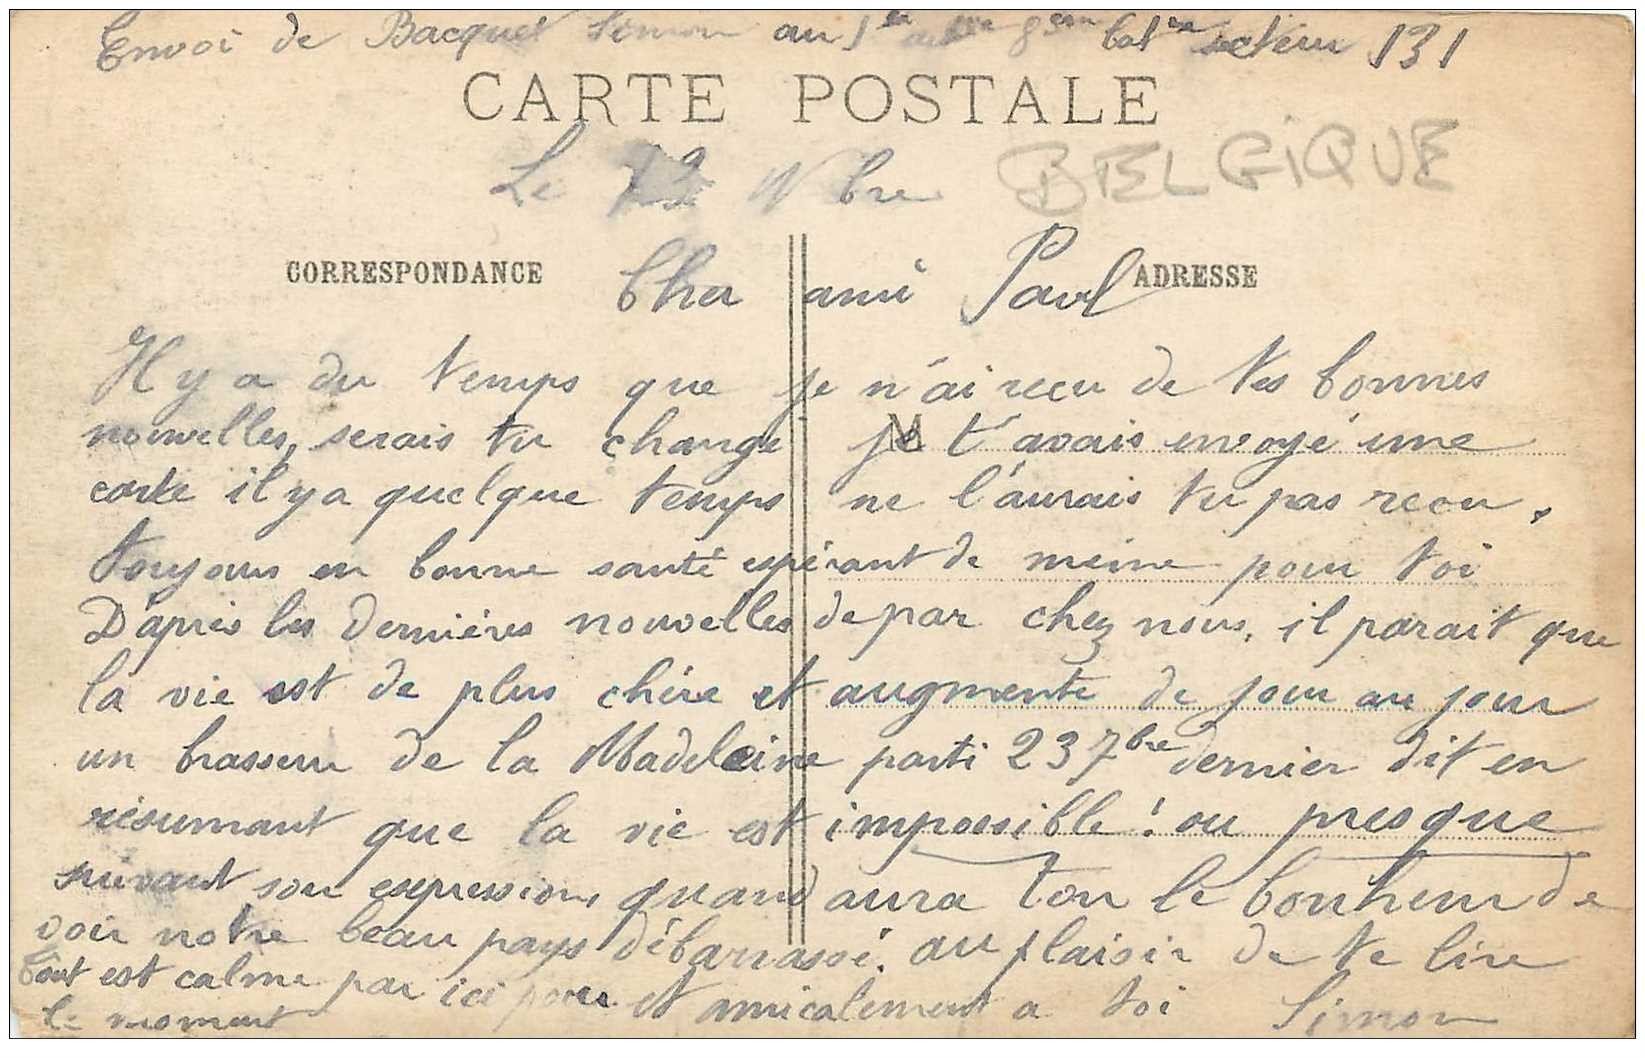 Envoi de Bacquet Simon au 1er 8em bat secteur 131
CARTE POSTALE
Le Nbre BELGIQUE
CORRESPONDANCE Cher ami Paul ADRESSE
Il y a du temps que je n'ai recu de tes bonnes
nouvelles, serais tu changé je t'avais envoyé une
carte il y a quelque temps ne l'aurais tu pas recu.
Toujours en bonne santé espérant de meme pour toi
D'après les dernières nouvelles de par chez nous, il parait que
la vie est de plus chère et augmente de jour au jour
un brasseur de la Madeleine parti 23 7bre dernier dit en
résumant que la vie est impossible ! ou presque
suivant son expression, quand aura ton le bonheur de
voir notre beau pays débarrassé. au plaisir de te lire
Tout est calme par ici pour et amicalement a toi Simon
le moment